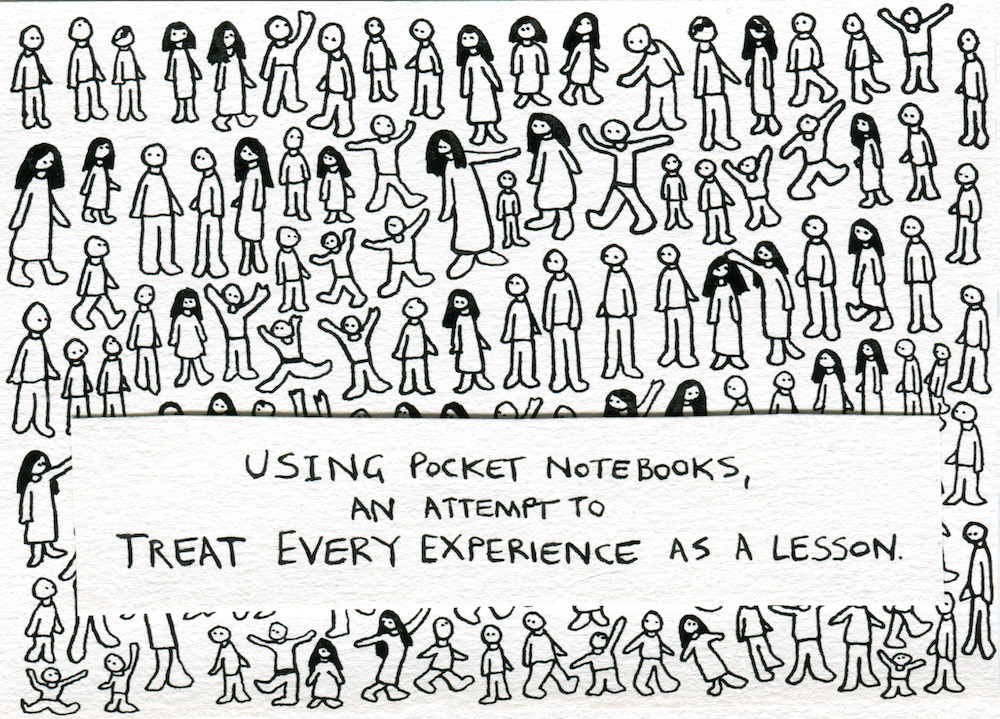 USING POCKET NOTEBOOKS,
AN ATTEMPT TO
TREAT EVERY EXPERIENCE AS A LESSON.